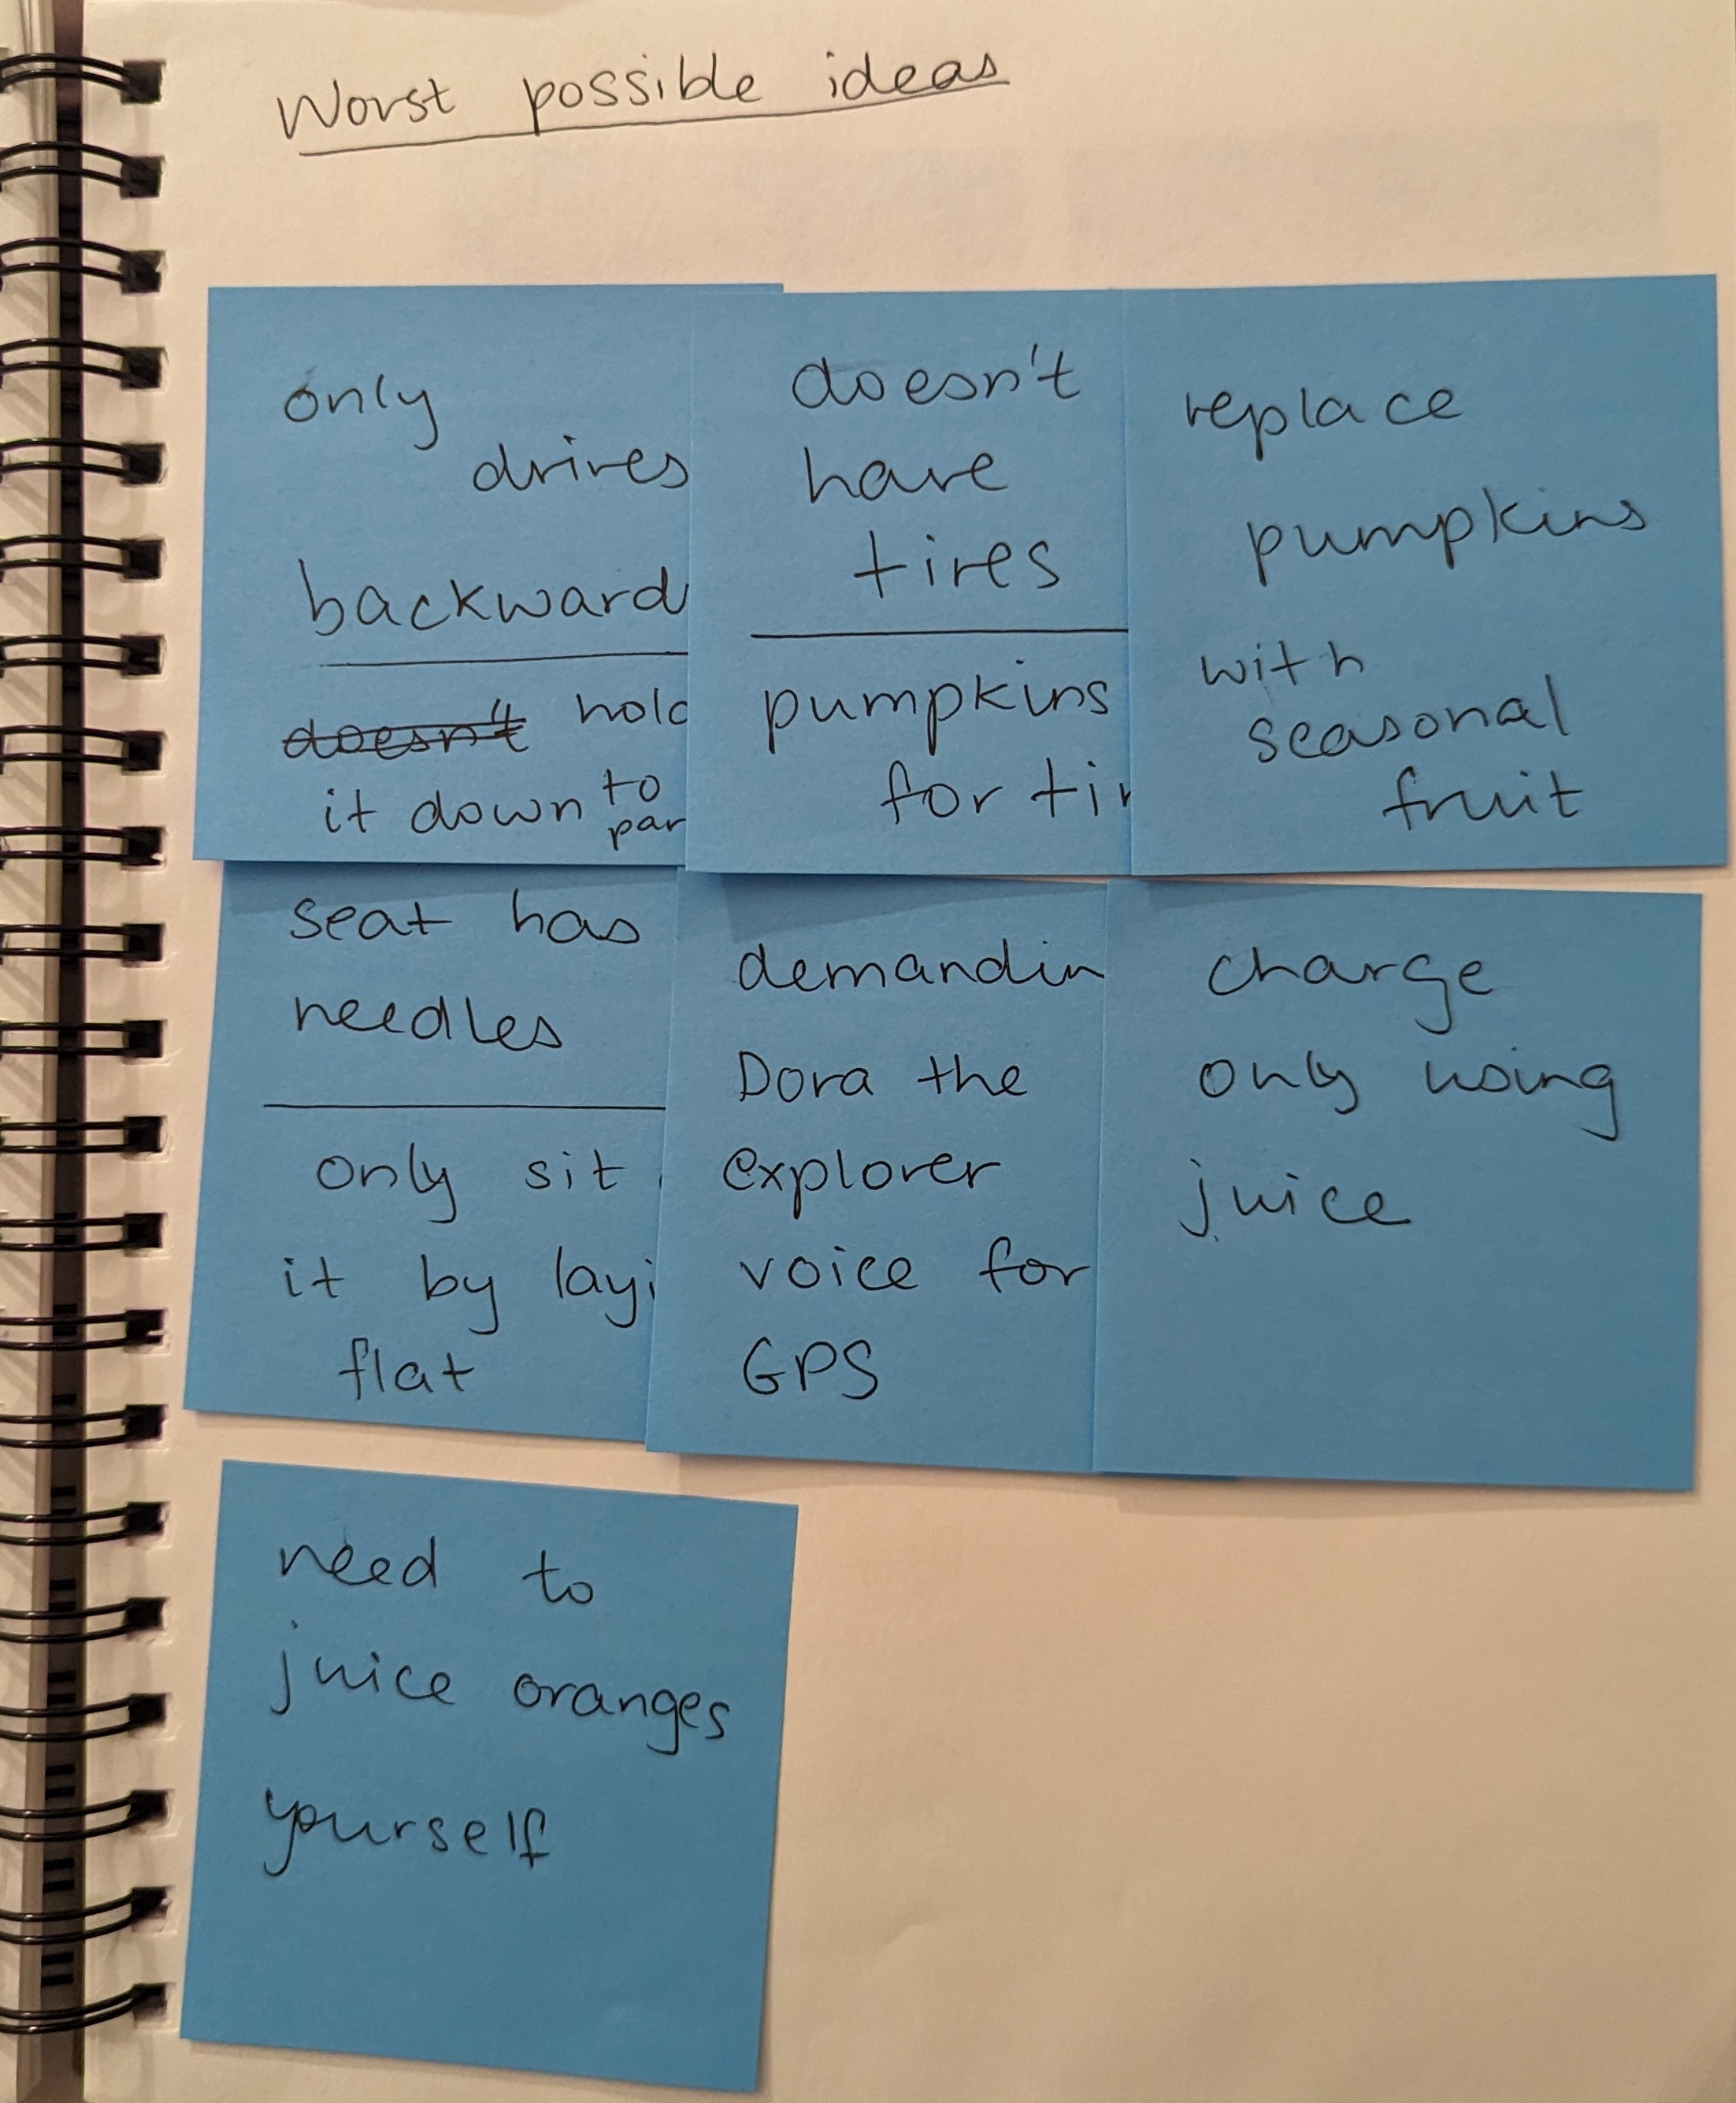 Worst possible ideas
only
drives
backward
doesn't hold
it down to
par
doesn't
have
tires
pumpkins
for tir
replace
pumpkins
with
seasonal
fruit
seat has
needles
only sit
it by layi
flat
demandin
Dora the
explorer
voice for
GPS
charge
only using
juice
need to
juice oranges
yourself